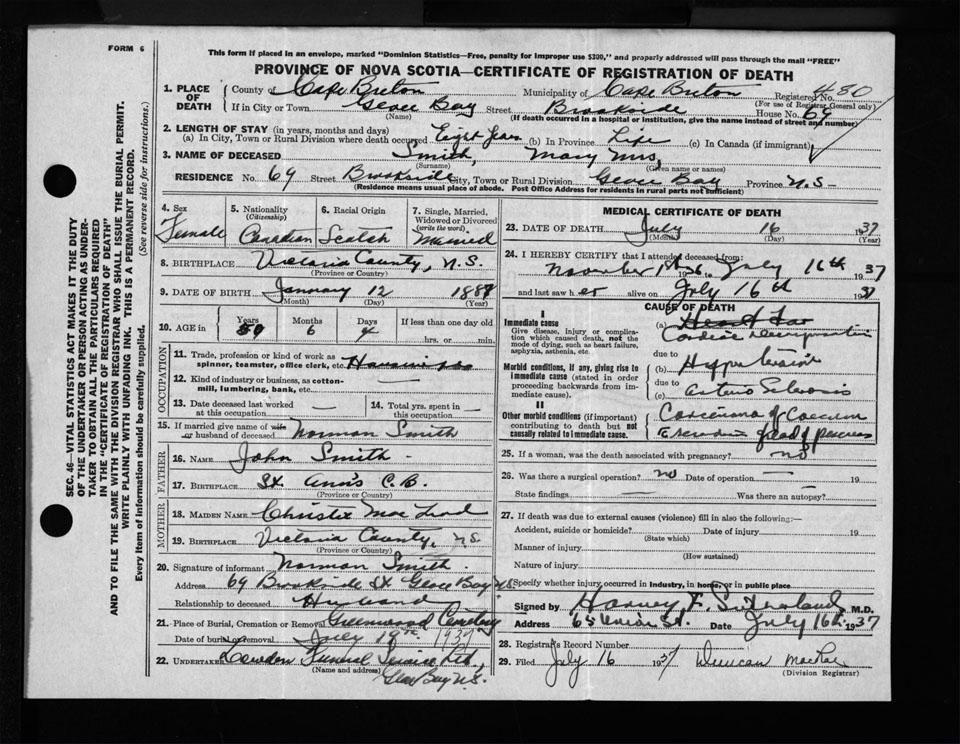 FORM 6
This form if placed in an envelope, marked "Dominion Statistics—Free, penalty for improper use $300," and properly addressed will pass through the mail "FREE"
PROVINCE OF NOVA SCOTIA—CERTIFICATE OF REGISTRATION OF DEATH
SEC. 46—VITAL STATISTICS ACT MAKES IT THE DUTY
OF THE UNDERTAKER OR PERSON ACTING AS UNDER-
TAKER TO OBTAIN ALL THE PARTICULARS REQUIRED
IN THE "CERTIFICATE OF REGISTRATION OF DEATH"
AND TO FILE THE SAME WITH THE DIVISION REGISTRAR WHO SHALL ISSUE THE BURIAL PERMIT.
WRITE PLAINLY WITH UNFADING INK. THIS IS A PERMANENT RECORD.
Every item of information should be carefully supplied. (See reverse side for instructions.)
1. PLACE OF DEATH County of Cape Breton Municipality of Cape Breton Registered No. 430
(For use of Registrar General only)
If in City or Town Glace Bay Street Brookside House No. 69
(Name) (If death occurred in a hospital or institution, give the name instead of street and number)
2. LENGTH OF STAY (in years, months and days)
(a) In City, Town or Rural Division where death occurred Eight Years (b) In Province Life (c) In Canada (if immigrant)
3. NAME OF DECEASED Smith, Mary Mrs,
(Surname) (Given name or names)
RESIDENCE No. 69 Street Brookside City, Town or Rural Division Glace Bay Province N.S—
(Residence means usual place of abode. Post Office Address for residents in rural parts not sufficient)
4. Sex Female
5. Nationality (Citizenship) Canadian
6. Racial Origin Scotch
7. Single, Married, Widowed or Divorced (write the word) Married
8. BIRTHPLACE Victoria County, N.S.
(Province or Country)
9. DATE OF BIRTH January 12 1887
(Month) (Day) (Year)
10. AGE in Years 50 Months 6 Days 4 If less than one day old hrs. or min.
OCCUPATION
11. Trade, profession or kind of work as spinner, teamster, office clerk, etc. Housewife
12. Kind of industry or business, as cotton-mill, lumbering, bank, etc. —
13. Date deceased last worked at this occupation —
14. Total yrs. spent in this occupation —
15. If married give name of wife or husband of deceased Norman Smith
FATHER
16. NAME John Smith
17. BIRTHPLACE St. Ann's C.B.
(Province or Country)
MOTHER
18. MAIDEN NAME Christie Mac Leod
19. BIRTHPLACE Victoria County, N.S.
(Province or Country)
20. Signature of informant Norman Smith
Address 69 Brookside St Glace Bay N.S.
Relationship to deceased Husband
21. Place of Burial, Cremation or Removal Greenwood Cemetery
Date of burial or removal July 19th 1937
22. Undertaker Funeral Service Ltd,
(Name and address) Glace Bay N.S.
MEDICAL CERTIFICATE OF DEATH
23. DATE OF DEATH July 16 1937
(Month) (Day) (Year)
24. I HEREBY CERTIFY that I attended deceased from:
November 1st 1936 to July 16th 1937
and last saw her alive on July 16th 1937
CAUSE OF DEATH
I
Immediate cause
Give disease, injury or complication which caused death, not the mode of dying, such as heart failure, asphyxia, asthenia, etc.
(a) Cardiac Decompensation
due to
Morbid conditions, if any, giving rise to immediate cause (stated in order proceeding backwards from immediate cause).
(b) Hypertension
due to
(c) Arterio Sclerosis
II
Other morbid conditions (if important) contributing to death but not causally related to immediate cause.
Carcinoma of Caecum
head of pancreas
25. If a woman, was the death associated with pregnancy? no
26. Was there a surgical operation? no Date of operation — 19
State findings — Was there an autopsy? —
27. If death was due to external causes (violence) fill in also the following:—
Accident, suicide or homicide? Date of injury 19
(State which)
Manner of injury
(How sustained)
Nature of injury
Specify whether injury occurred in industry, in home, or in public place
Signed by Harvey F. Sutherland M.D.
Address 65 Union St. Date July 16th 1937
28. Registrar's Record Number
29. Filed July 16 1937 Duncan MacRae
(Division Registrar)